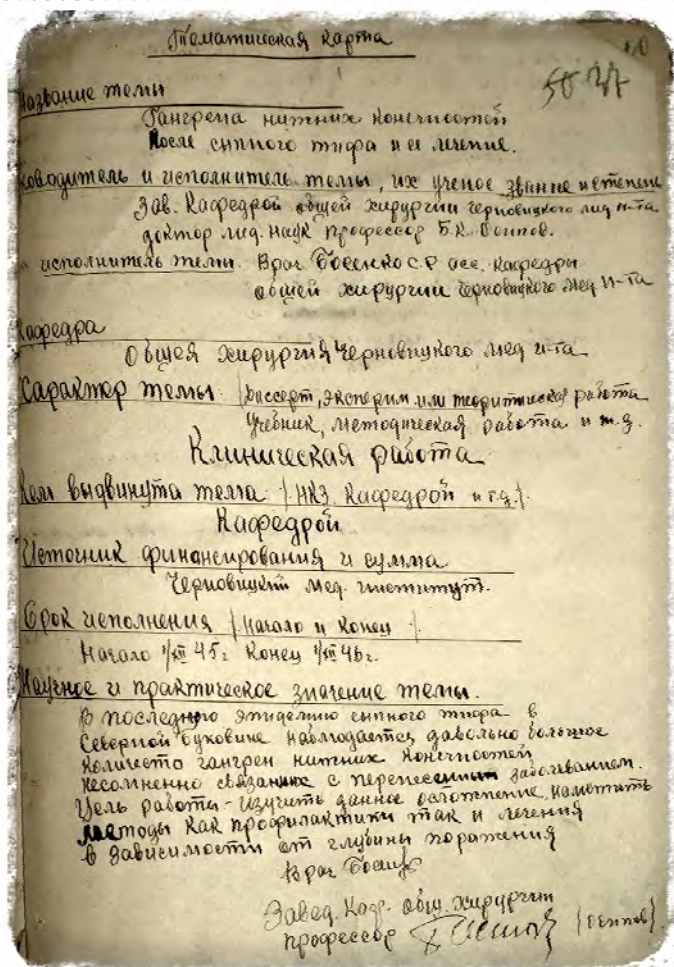 Тематическая карта
Название темы
Гангрена нижних конечностей
После сыпного тифа и ее лечение.
ководитель и исполнитель темы, их ученое звание и степень
Зав. Кафедрой общей хирургии Черновицкого мед и-та
доктор мед. наук профессор Б.К. Осипов.
исполнитель темы Врач Босенко С.Р асс. кафедры
общей хирургии Черновицкого мед и-та
Кафедра
Общей хирургия Черновицкого мед и-та
Характер темы (диссерт, эксперим или теоритическая работа
Учебник, методическая работа и т.д.
Клиническая работа
Кем выдвинута тема (НКЗ, Кафедрой и т.д.).
Кафедрой
Источник финансирования и сумма
Черновицкий мед. институт.
Срок исполнения (Начало и Конец).
Начало 1/XII 45г Конец 1/XII 46г.
Научное и практическое значение темы.
В последнюю эпидемию сыпного тифа в
Северной Буковине наблюдается довольно большое
количество гангрен нижних конечностей
несомненно связанных с перенесенным заболеванием.
Цель работы - изучить данное осложнение, наметить
методы как профилактики так и лечения
в зависимости от глубины поражения
Врач
Завед. Каф. общ. хирургии
профессор (Осипов).